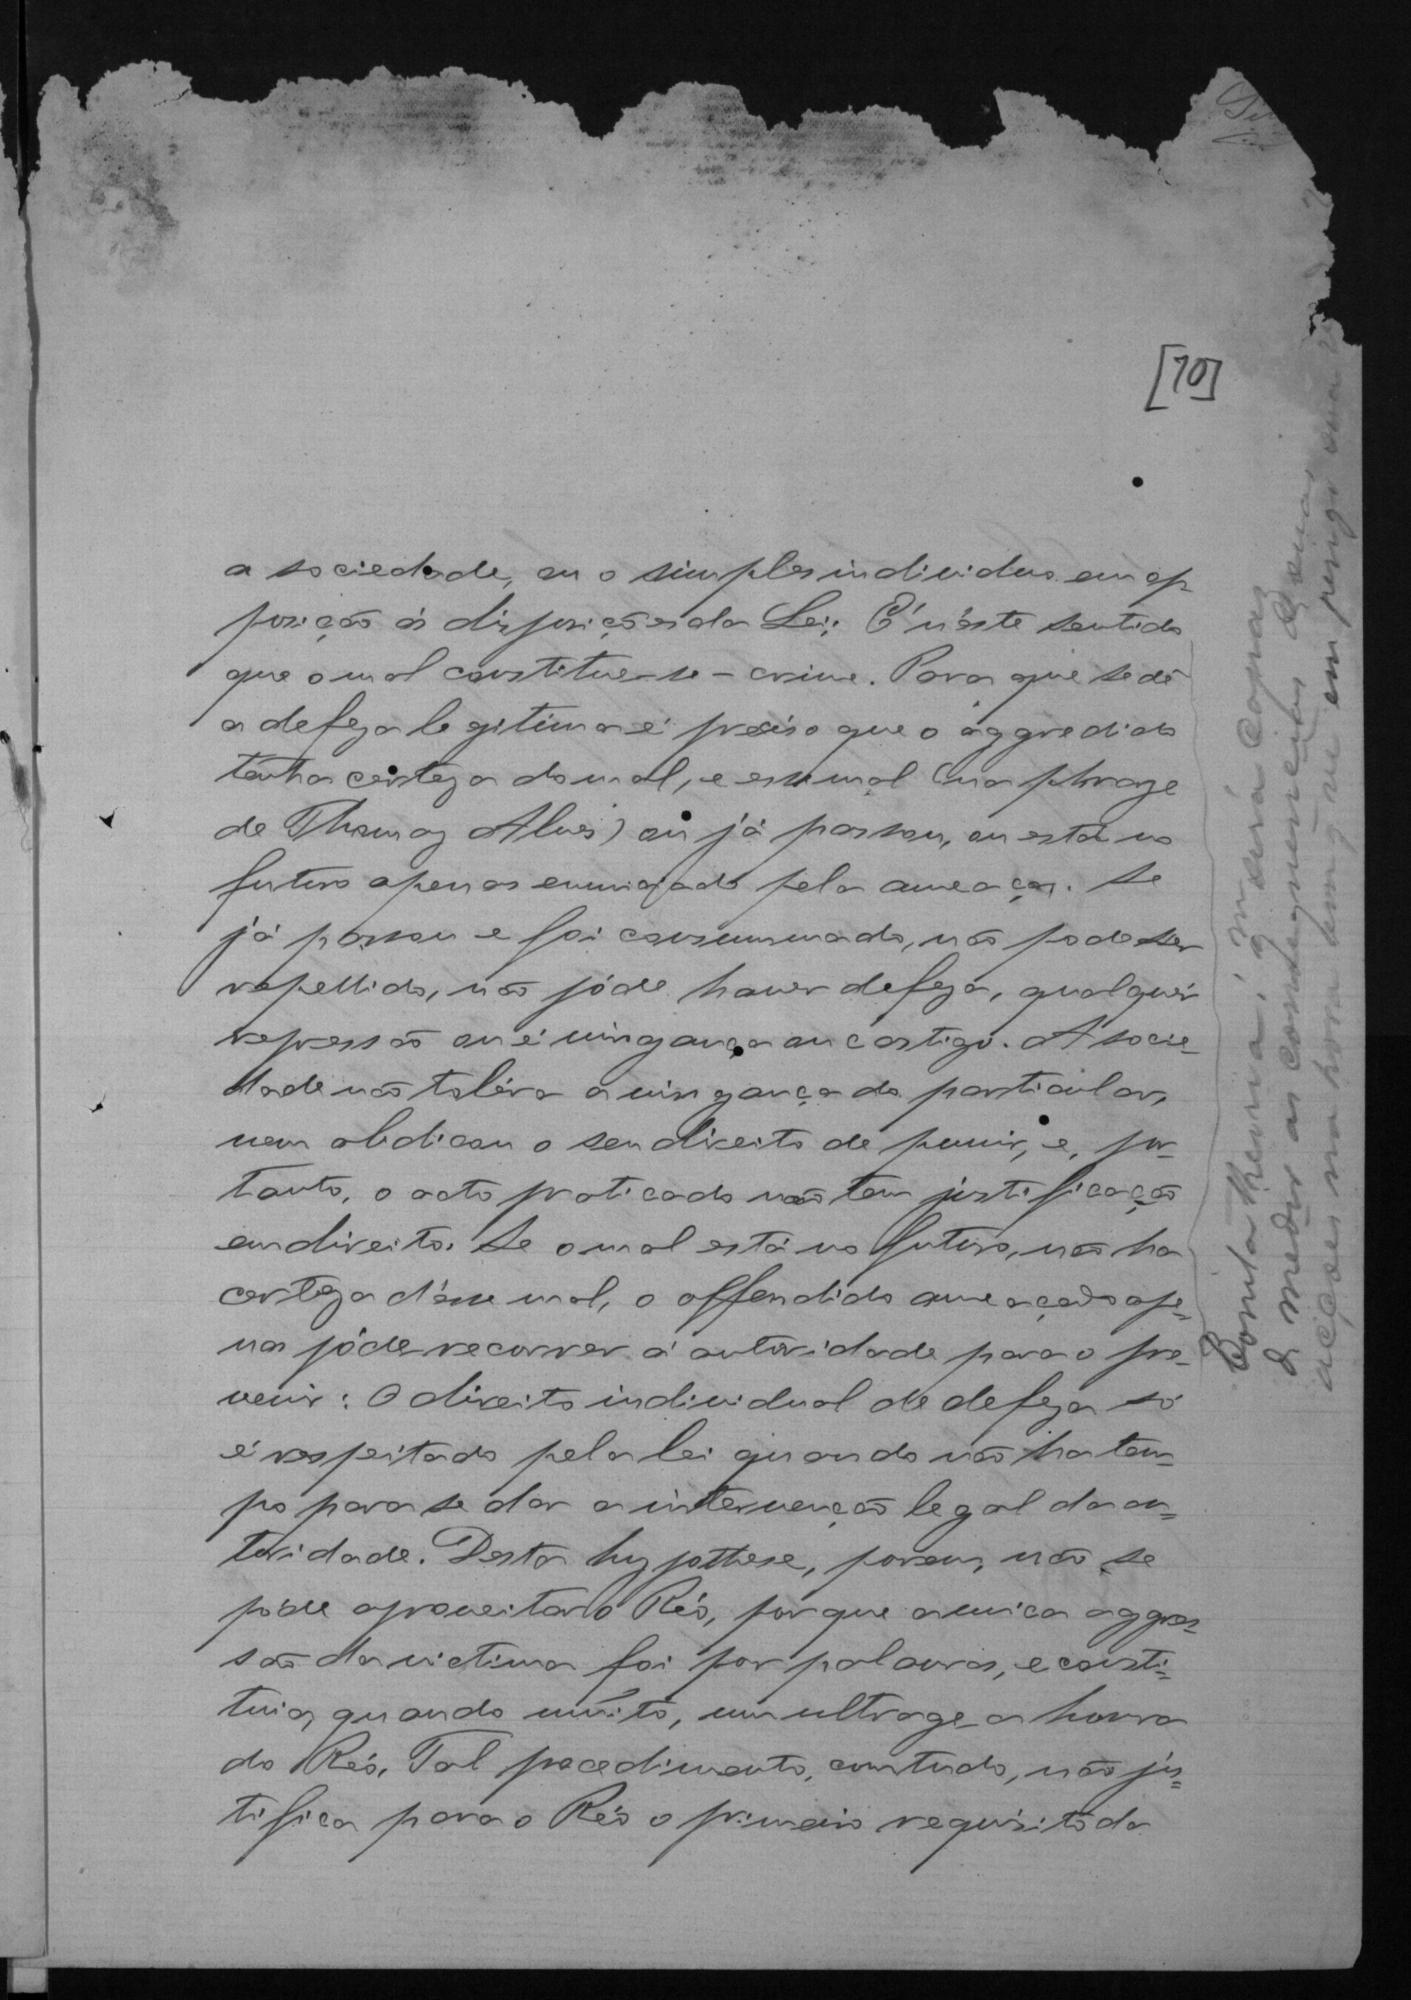 [70]
a sociedade, ou o simples individuo em op-
posição ás disposições da Lei; É n'éste sentido
que o mal constitue-se - crime. Para que se dê
a defeza legitima é preciso que o aggredido
tenha certeza do mal, e esse mal (na phraze
de Thomaz Alves) ou já passou, ou está no
futuro apenas enunciado pela ameaça. Se
já passou e foi consummado, não pode ser
repellido, não póde haver defeza, qualquer
repressão ou é vingança ou castigo. A socie-
dade não toléra a vingança do particular,
nem abdicou o seu direito de punir, e, por-
tanto, o acto praticado não tem justificação
em direito. Se o mal está no futuro, não ha
certeza d'esse mal, o offendido ameaçado ape-
nas póde recorrer á autoridade para o pre-
venir: O direito individual de defeza só
é respeitado pela lei quando não ha tem-
po para se dar a intervenção legal da au-
toridade. Desta hypothese, porem, não se
póde aproveitar o Réo, porque a unica aggres-
são da victima foi por palavras, e consti-
tuia, quando muito, um ultrage a honra
do Réo. Tal procedimento, comtudo, não jus-
tifica para o Réo o primeiro requisito da
Bonita theoria!
medir as consequencias
acções na hora em que em perigo sua